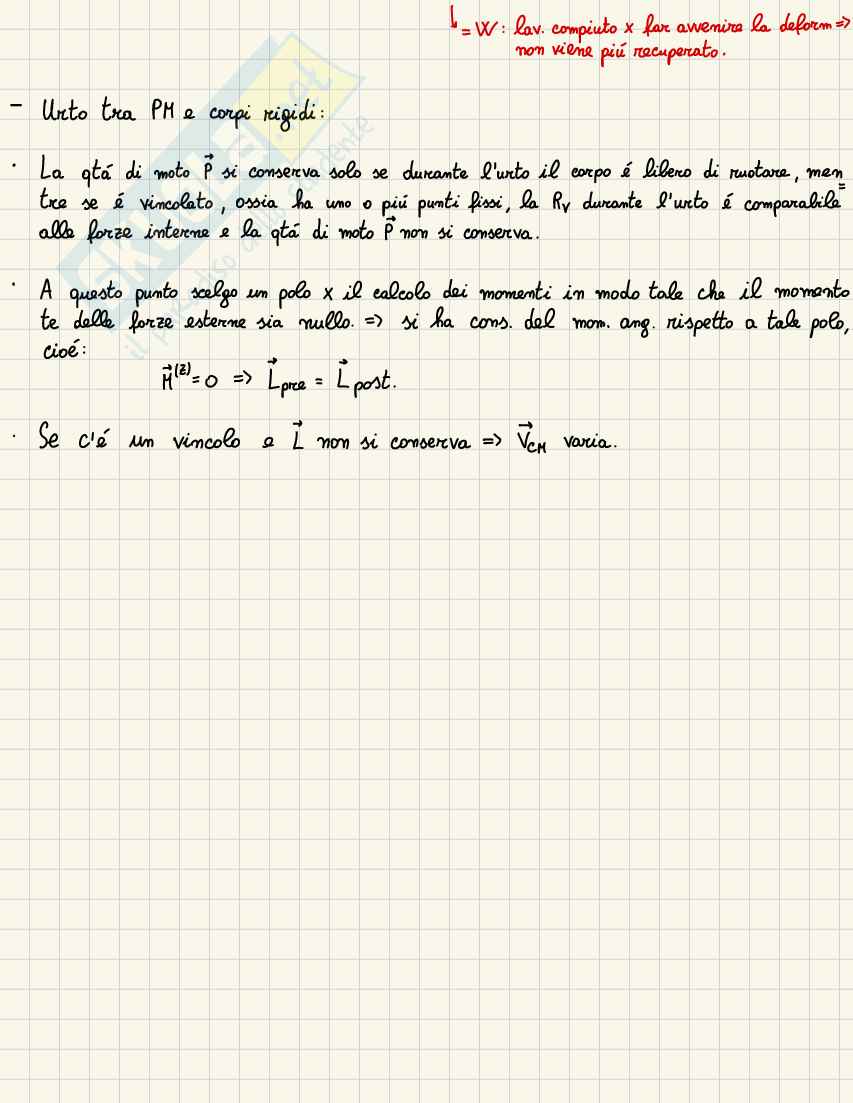 = W: lav. compiuto x far avvenire la deform =>
non viene piú recuperato.
- Urto tra PM e corpi rigidi:
· La qtá di moto P⃗ si conserva solo se durante l'urto il corpo é libero di ruotare, men
tre se é vincolato, ossia ha uno o piú punti fissi, la Rv durante l'urto é comparabile
alle forze interne e la qtá di moto P⃗ non si conserva.
· A questo punto scelgo un polo x il calcolo dei momenti in modo tale che il momento
te delle forze esterne sia nullo. => si ha cons. del mom. ang. rispetto a tale polo,
cioé:
M⃗^(E) = 0 => L⃗pre = L⃗post.
· Se c'é un vincolo e L⃗ non si conserva => V⃗CM varia.
SKUOLA.net
il paradiso dello studente